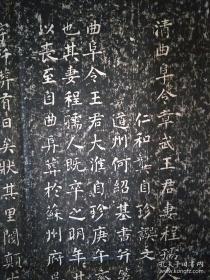 清曲阜令章武王君妻程孺
仁和龔自珍譔文
道州何紹基書并篆
曲阜令王君大淮自珍庚午
也其妻程孺人既卒之明年其
以喪至自曲阜葬於蘇州府吳
葬有日矣狀其里閥顛